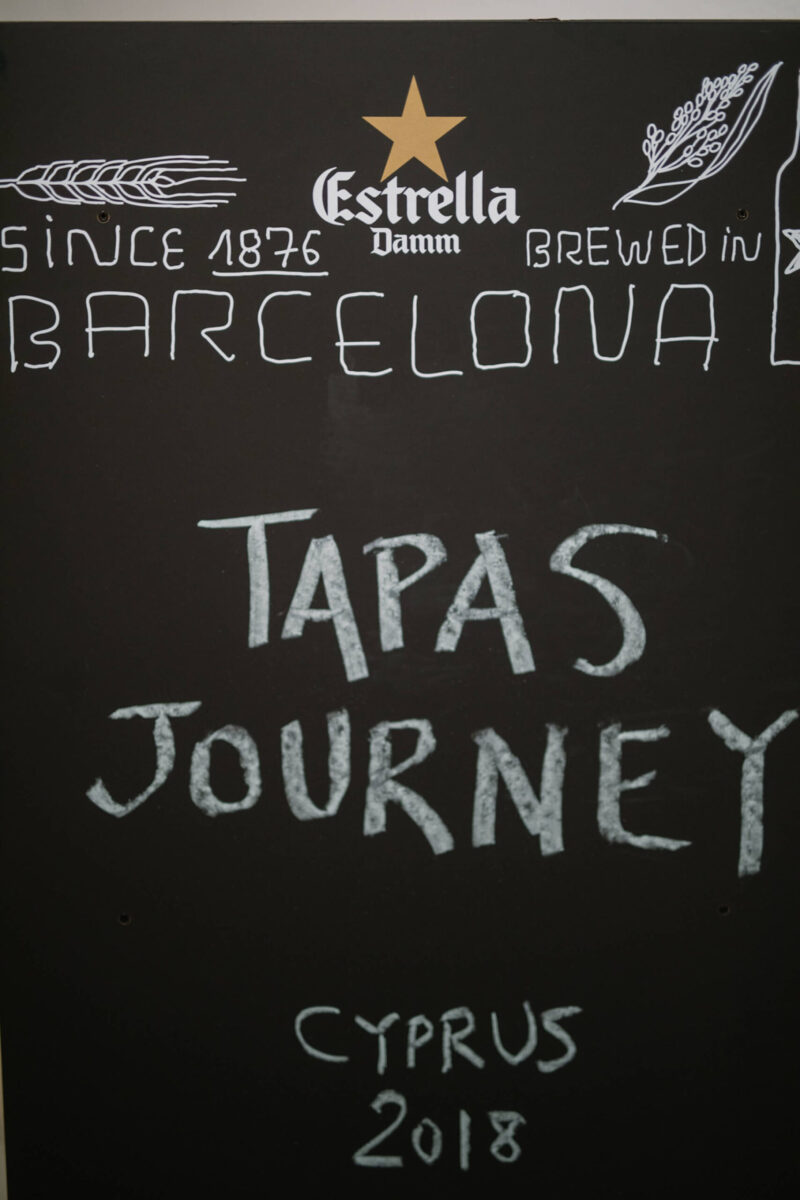 Estrella
Damm
SINCE 1876
BREWED IN
BARCELONA
TAPAS
JOURNEY
CYPRUS
2018